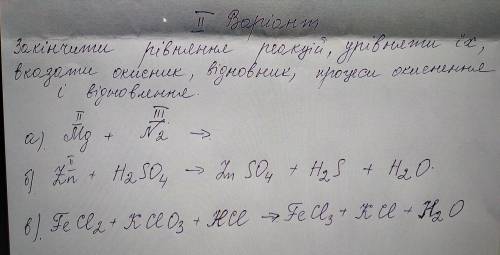 II Варіант
Закінчити рівняння реакцій, урівняти їх,
вказати окисник, відновник, процеси окиснення
і відновлення.
II III
а). Mg + N₂ →
II
б) Zn + H₂SO₄ → ZnSO₄ + H₂S + H₂O.
в). FeCl₂ + KClO₃ + HCl → FeCl₃ + KCl + H₂O